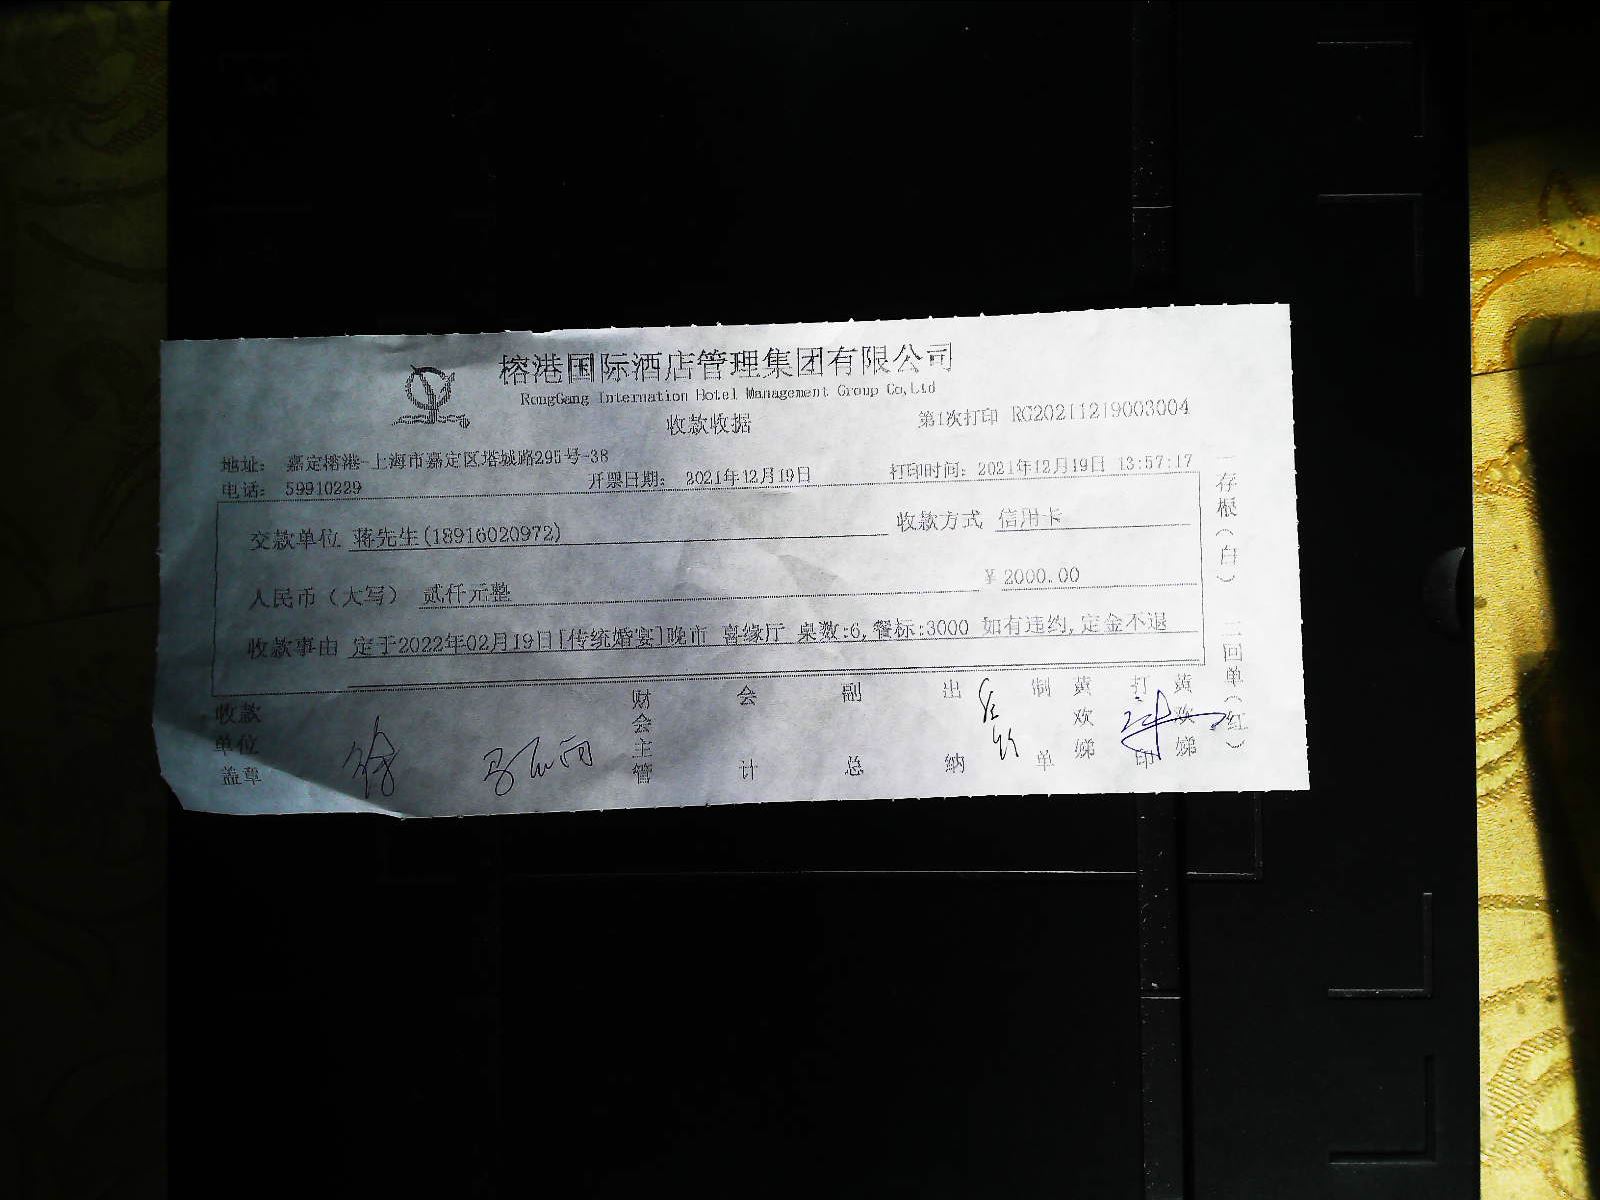 榕港国际酒店管理集团有限公司
RongGang Internation Hotel Management Group Co,Ltd
收款收据
第1次打印 RG20211219003004
地址： 嘉定榕港-上海市嘉定区塔城路295号-38
电话： 59910229
开票日期： 2021年12月19日
打印时间：2021年12月19日 13:57:17
交款单位 蒋先生(18916020972)
收款方式 信用卡
人民币（大写） 贰仟元整
¥ 2000.00
收款事由 定于2022年02月19日[传统婚宴]晚市 喜缘厅 桌数:6,餐标:3000 如有违约,定金不退
收款单位盖章
财会主管
会计
副总
出纳
制单
黄欢娣
打印
黄欢娣
一存根（白）
二回单（红）